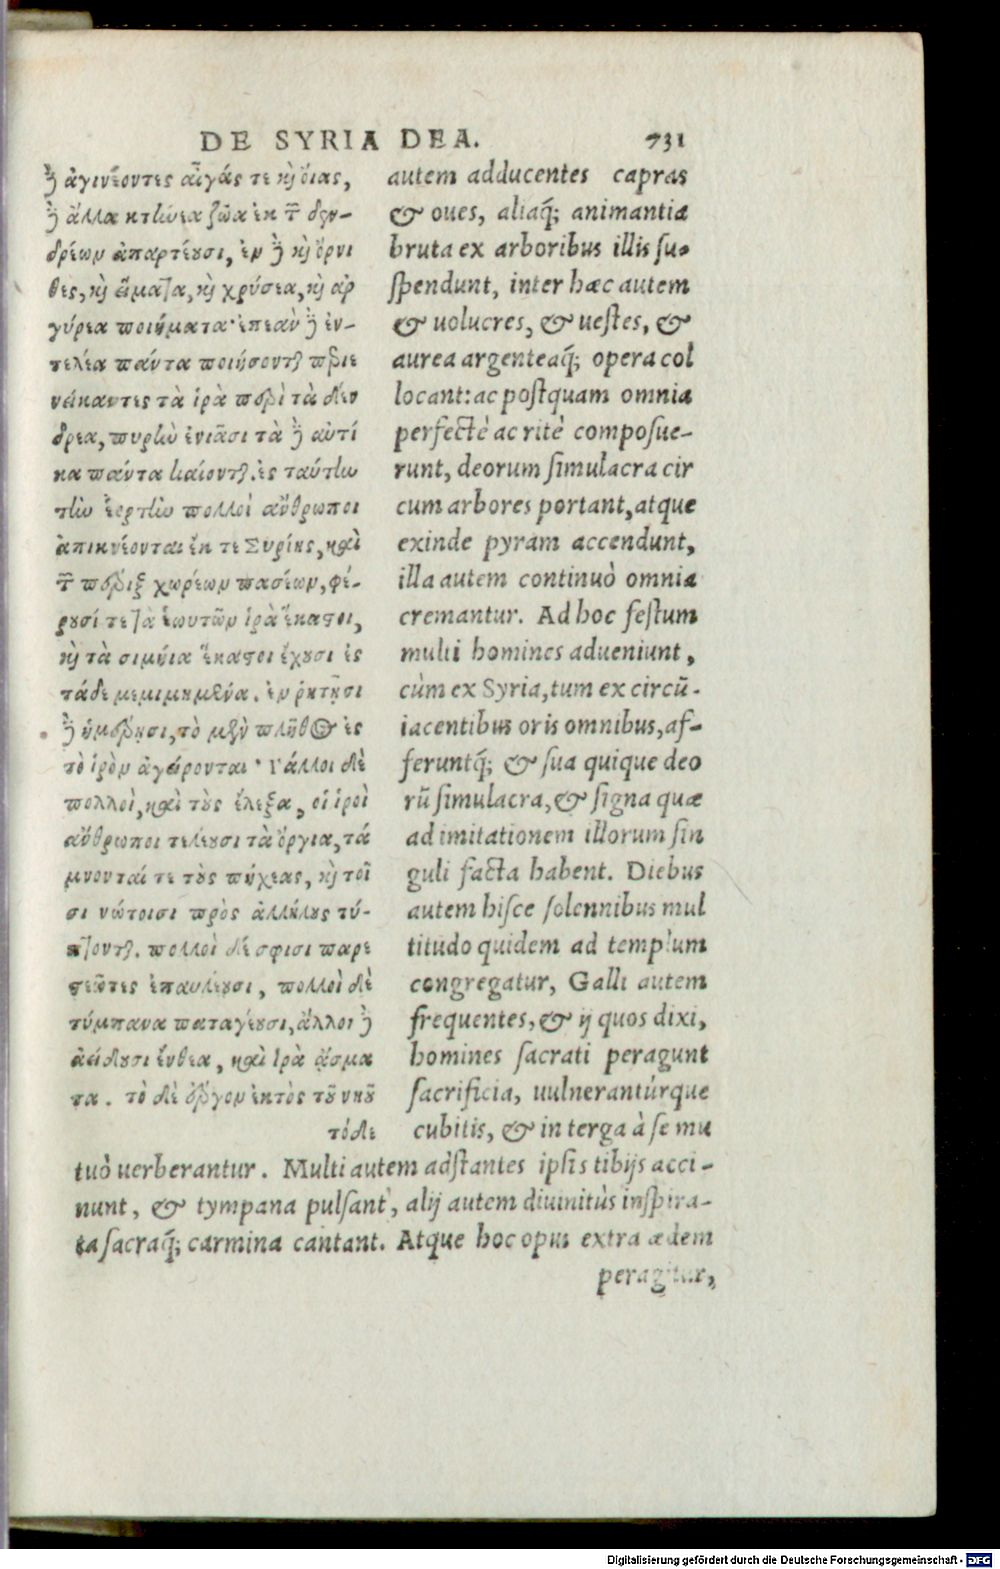 DE SYRIA DEA. 731
δὲ ἀγινέοντες αἶγάς τε καὶ ὄιας,
δὲ ἄλλα κτήνεα ζῶα ἐκ τῶν δεν-
δρέων ἀπαρτέουσι, ἐν δὲ καὶ ὄρνι
θες, καὶ εἵματα, καὶ χρύσεα, καὶ ἀρ
γύρεα ποιήματα· ἐπεὰν δὲ ἐν-
τελέα πάντα ποιήσονται περιε
νείκαντες τὰ ἱρὰ περὶ τὰ δέν
δρεα, πυρὴν ἐνιᾶσι τὰ δὲ αὐτί
κα πάντα καίονται. ἐς ταύτην
τὴν ἑορτὴν πολλοὶ ἄνθρωποι
ἀπικνέονται ἔκ τε Συρίης, καὶ
τῶν πέριξ χωρέων πασέων, φέ-
ρουσί τε τὰ ἑωυτῶν ἱρὰ ἕκαστοι,
καὶ τὰ σιμήια ἕκαστοι ἔχουσι ἐς
τάδε μεμιμημένα. ἐν ῥητῇσι
δὲ ἡμέρῃσι, τὸ μὲν πλῆθος ἐς
τὸ ἱρὸν ἀγείρονται· Γάλλοι δὲ
πολλοὶ, καὶ τοὺς ἔλεξα, οἱ ἱροὶ
ἄνθρωποι τελέουσι τὰ ὄργια, τά
μνονταί τε τοὺς πήχεας, καὶ τοῖ
σι νώτοισι πρὸς ἀλλήλους τύ-
πτονται. πολλοὶ δέ σφισι παρε
στεῶτες ἐπαυλέουσι, πολλοὶ δὲ
τύμπανα παταγέουσι, ἄλλοι δὲ
ἀείδουσι ἔνθεα, καὶ ἱρὰ ᾄσμα
τα. τὸ δὲ ἔργον ἐκτὸς τοῦ νηοῦ
τόδε
autem adducentes capras
& oues, aliaq́; animantia
bruta ex arboribus illis su-
spendunt, inter hæc autem
& uolucres, & uestes, &
aurea argenteaq́; opera col
locant: ac postquam omnia
perfectè ac ritè composue-
runt, deorum simulacra cir
cum arbores portant, atque
exinde pyram accendunt,
illa autem continuò omnia
cremantur. Ad hoc festum
multi homines adueniunt,
cùm ex Syria, tum ex circũ-
iacentibus oris omnibus, af-
feruntq́; & sua quique deo
rũ simulacra, & signa quæ
ad imitationem illorum sin
guli facta habent. Diebus
autem hisce solennibus mul
titudo quidem ad templum
congregatur, Galli autem
frequentes, & ij quos dixi,
homines sacrati peragunt
sacrificia, uulneranturque
cubitis, & in terga à se mu
tuò uerberantur. Multi autem adstantes ipsis tibijs acci-
nunt, & tympana pulsant, alij autem diuinitùs inspira-
ta sacraq́; carmina cantant. Atque hoc opus extra ædem
peragitur,
Digitalisierung gefördert durch die Deutsche Forschungsgemeinschaft - DFG